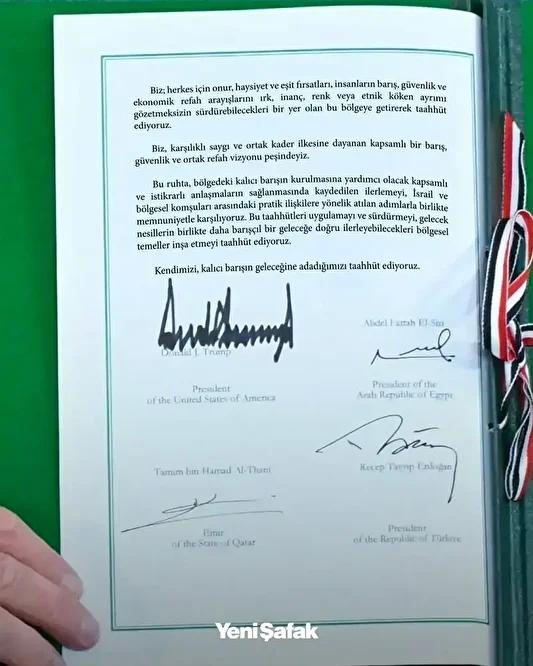 Biz; herkes için onur, haysiyet ve eşit fırsatları, insanların barış, güvenlik ve
ekonomik refah arayışlarını ırk, inanç, renk veya etnik köken ayrımı
gözetmeksizin sürdürebilecekleri bir yer olan bu bölgeye getirerek taahhüt
ediyoruz.
Biz, karşılıklı saygı ve ortak kader ilkesine dayanan kapsamlı bir barış,
güvenlik ve ortak refah vizyonu peşindeyiz.
Bu ruhta, bölgedeki kalıcı barışın kurulmasına yardımcı olacak kapsamlı
ve istikrarlı anlaşmaların sağlanmasında kaydedilen ilerlemeyi, İsrail ve
bölgesel komşuları arasındaki pratik ilişkilere yönelik atılan adımlarla birlikte
memnuniyetle karşılıyoruz. Bu taahhütleri uygulamayı ve sürdürmeyi, gelecek
nesillerin birlikte daha barışçıl bir geleceğe doğru ilerleyebilecekleri bölgesel
temeller inşa etmeyi taahhüt ediyoruz.
Kendimizi, kalıcı barışın geleceğine adadığımızı taahhüt ediyoruz.
Donald J. Trump
President
of the United States of America
Abdel Fattah El-Sisi
President of the
Arab Republic of Egypt
Tamim bin Hamad Al-Thani
Emir
of the State of Qatar
Recep Tayyip Erdoğan
President
of the Republic of Türkiye
YeniŞafak